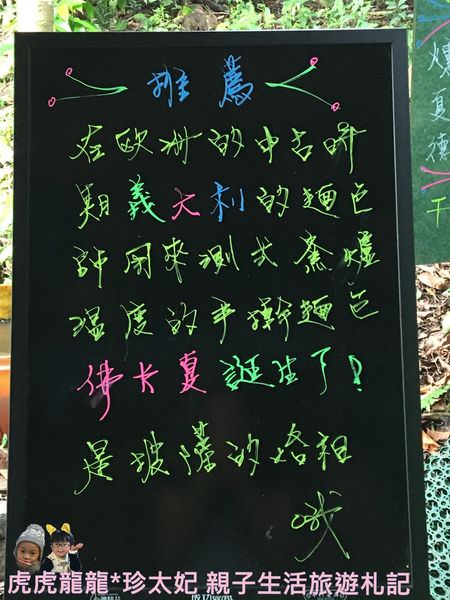 推薦
在歐洲的中古時
期義大利的麵包
師用來測式窯爐
溫度的手擀麵包
佛卡夏誕生了!
是坡薩的路祖
哦
爆
夏
德
干
虎虎龍龍*珍太妃 親子生活旅遊札記